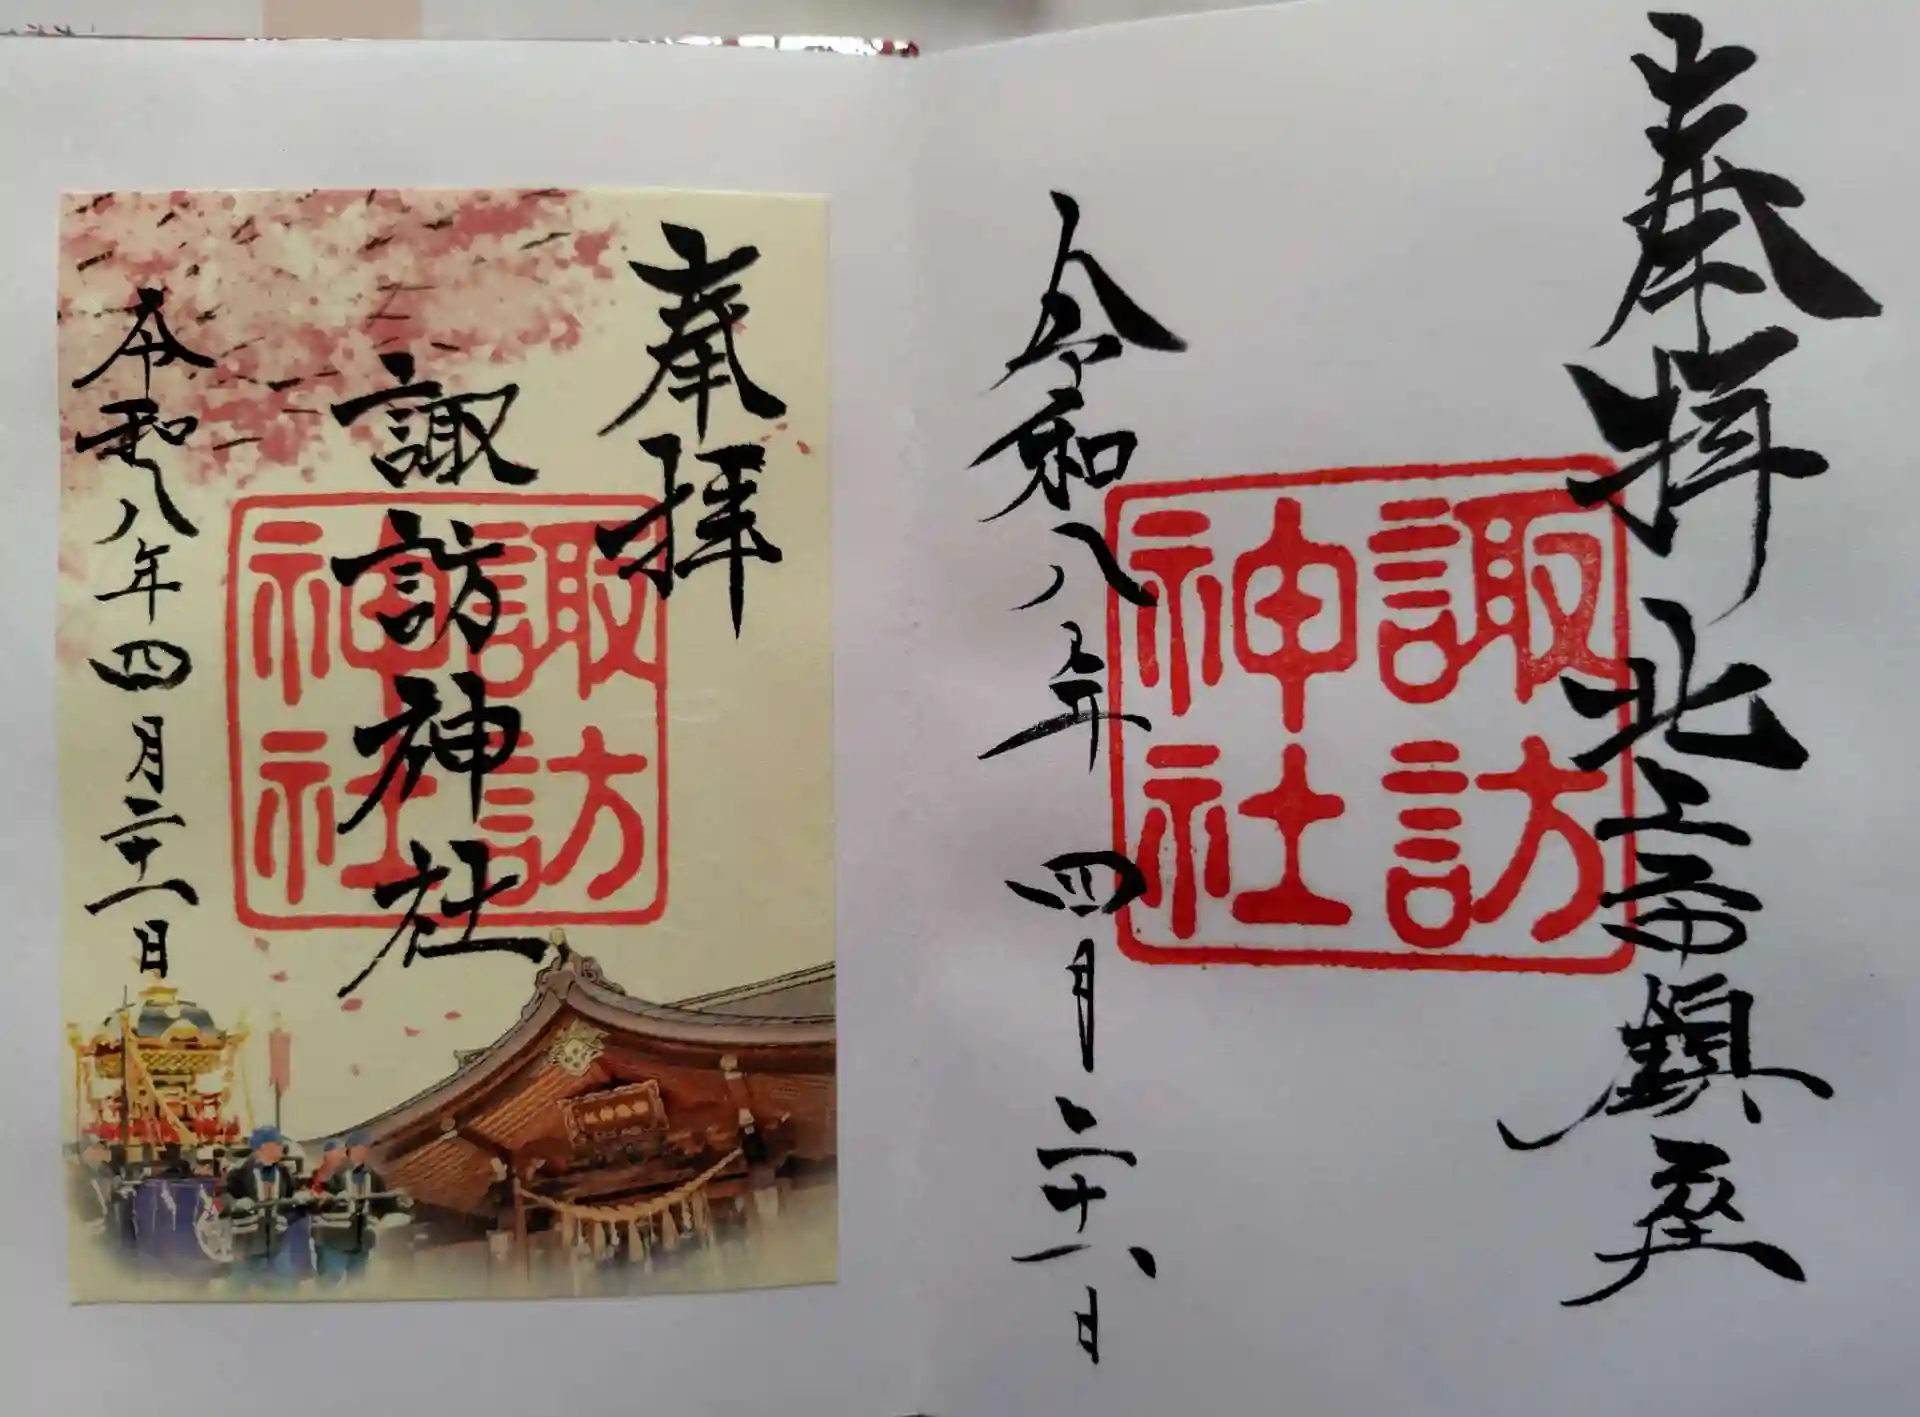 奉拝 北上市鎮座
諏訪
神社
令和八年四月二十六日
奉拝
諏訪神社
諏訪
神社
令和八年四月二十六日